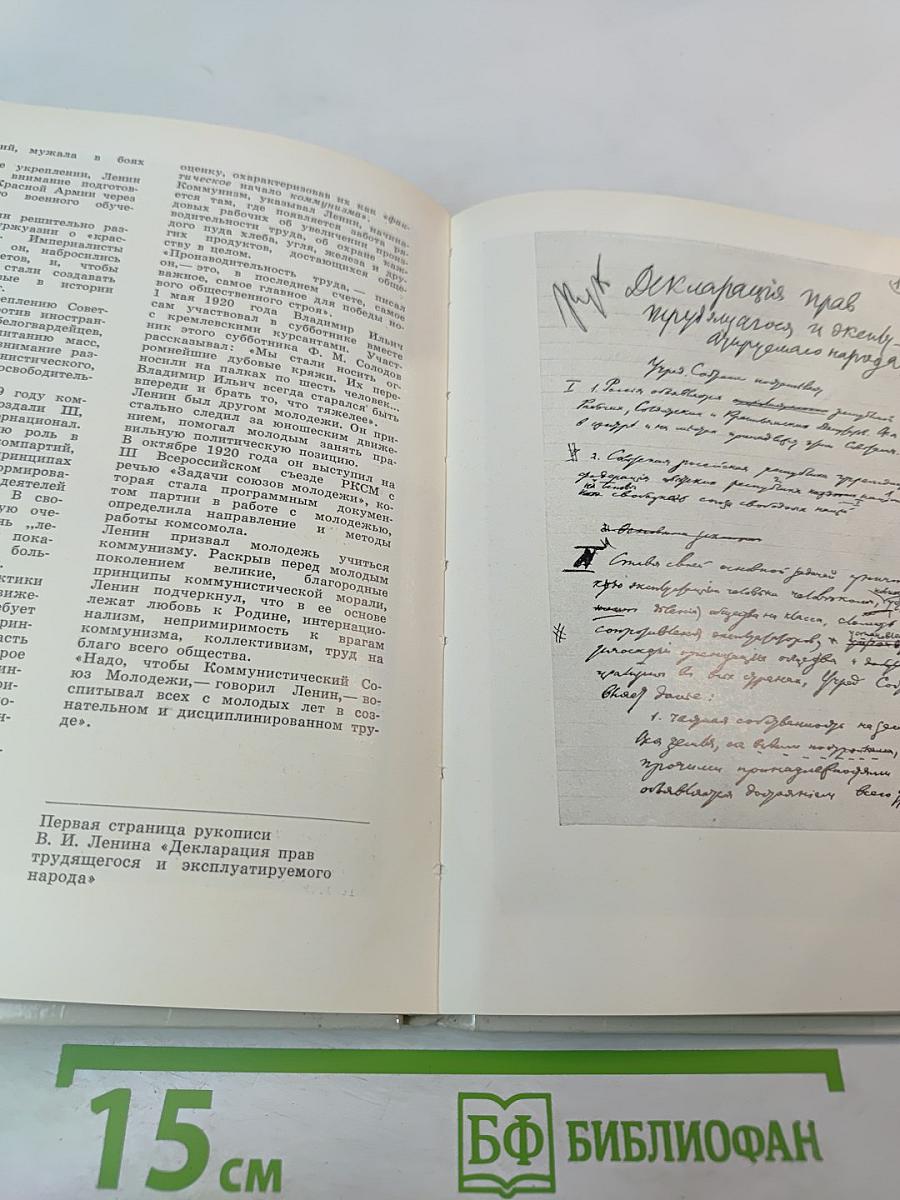 ий, мужала в боях
е укреплении, Ленин
внимание подготов-
Красной Армии через
го военного обуче-
ии решительно раз-
уржуазии о «крас-
. Империалисты
он, набросились
етов, и, чтобы
стали создавать
вые в истории
т.
реплению Совет-
ротив иностран-
белогвардейцев,
питанию масс,
внимание раз-
нистического,
освободитель-
9 году ком-
оздали III,
тернационал.
ю роль в
компартий,
принципах
ормирова-
деятелей
В сво-
ую оче-
нь „ле-
пока-
боль-
ктики
виже-
ебует
рин-
асть
рое
ин-
ри-
ло-
н-
оценку, охарактеризовав их как «фак-
тическое начало коммунизма».
Коммунизм, указывал Ленин, начина-
ется там, где появляется забота ря-
довых рабочих об увеличении произ-
водительности труда, об охране каж-
дого пуда хлеба, угля, железа и дру-
гих продуктов, достающихся обще-
ству в целом.
«Производительность труда,— писал
он,— это, в последнем счете, самое
важное, самое главное для победы но-
вого общественного строя».
1 мая 1920 года Владимир Ильич
сам участвовал в субботнике вместе
с кремлевскими курсантами. Участ-
ник этого субботника Ф. М. Солодов
рассказывал: «Мы стали носить ог-
ромнейшие дубовые кряжи. Их пере-
носили на палках по шесть человек...
Владимир Ильич всегда старался быть
впереди и брать то, что тяжелее».
Ленин был другом молодежи. Он при-
стально следил за юношеским движе-
нием, помогал молодым занять пра-
вильную политическую позицию.
В октябре 1920 года он выступил на
III Всероссийском съезде РКСМ с
речью «Задачи союзов молодежи», ко-
торая стала программным докумен-
том партии в работе с молодежью,
определила направление и методы
работы комсомола.
Ленин призвал молодежь учиться
коммунизму. Раскрыв перед молодым
поколением великие, благородные
принципы коммунистической морали,
Ленин подчеркнул, что в ее основе
лежат любовь к Родине, интернацио-
нализм, непримиримость к врагам
коммунизма, коллективизм, труд на
благо всего общества.
«Надо, чтобы Коммунистический Со-
юз Молодежи,— говорил Ленин,— во-
спитывал всех с молодых лет в соз-
нательном и дисциплинированном тру-
де».
Первая страница рукописи
В. И. Ленина «Декларация прав
трудящегося и эксплуатируемого
народа»
Декларація прав
трудящагося и эксплу-
атируемаго народа
Учред Собрание постановляет
I 1. Россия объявляется республикой
Рабочих, Солдатских и Крестьянских Депутатов.
2. Советская российская республика учреждается
федерация советских республик
свободных наций
Ставя своей основной задачей
эксплуатации человека человеком,
общества на классы,
сопротивления эксплуататоров,
организации общества и
во всех странах, Учред Собр
далее:
1. частная собственность на землю
прочими принадлежностями
объявляется достоянием всего
15 см
БФ БИБЛИОФАН